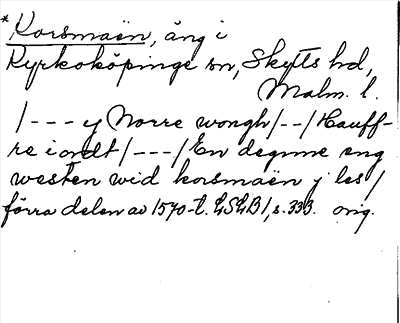 *Korsmaën, äng i
Kyrkoköpinge sn, Skytts hd,
Malm. l.
/--- y Norre wongh/--/Hauff-
re i ordt/---/En degnne eng
westen wid korsmaën j les/
förra delen av 1570-t. LSLB1, s. 333. orig.